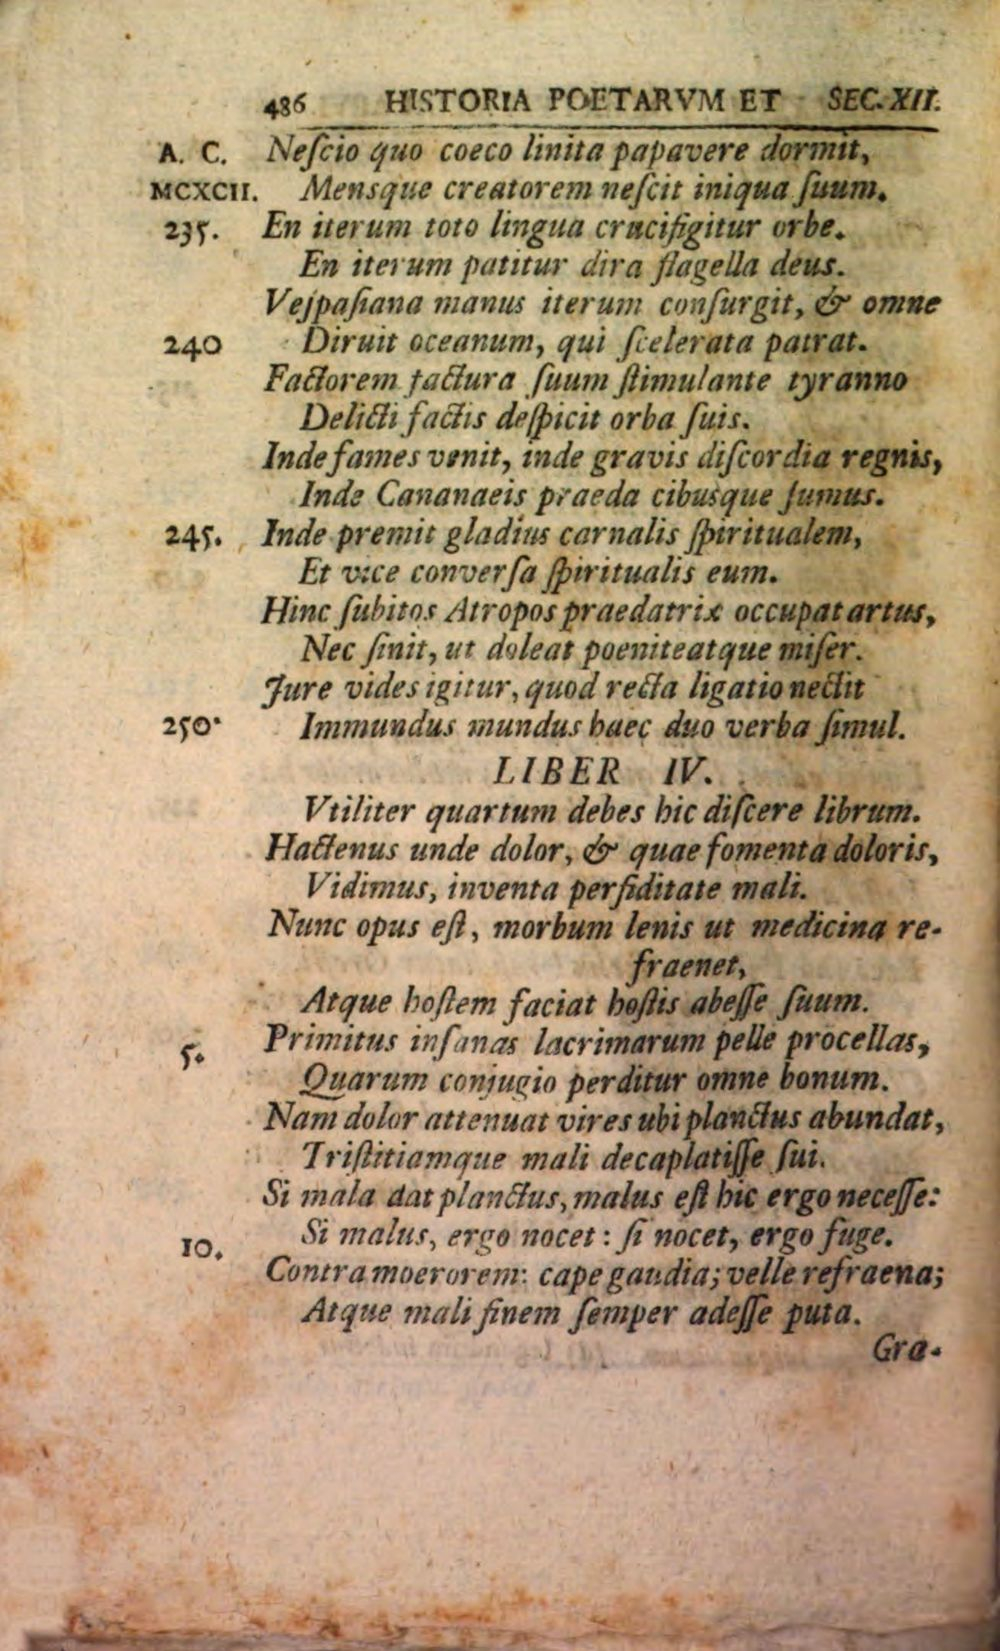 486 HISTORIA POETARVM ET SEC. XII.
A. C. Neſcio quo coeco linita papavere dormit,
MCXCII. Mensque creatorem neſcit iniqua ſuum.
235. En iterum toto lingua crucifigitur orbe.
En iterum patitur dira flagella deus.
Veſpaſiana manus iterum conſurgit, & omne
240 Diruit oceanum, qui ſcelerata patrat.
Factorem factura ſuum ſtimulante tyranno
Delicti factis deſpicit orba ſuis.
Inde fames venit, inde gravis diſcordia regnis,
Inde Cananaeis praeda cibusque ſumus.
245. Inde premit gladius carnalis ſpiritualem,
Et vice converſa ſpiritualis eum.
Hinc ſubitos Atropos praedatrix occupat artus,
Nec ſinit, ut doleat poeniteatque miſer.
Jure vides igitur, quod recta ligatio nectit
250. Immundus mundus haec duo verba ſimul.
LIBER IV.
Vtiliter quartum debes hic diſcere librum.
Hactenus unde dolor, & quae fomenta doloris,
Vidimus, inventa perfiditate mali.
Nunc opus eſt, morbum lenis ut medicina re-
fraenet,
Atque hoſtem faciat hoſtis abeſſe ſuum.
5. Primitus inſanas lacrimarum pelle procellas,
Quarum conjugio perditur omne bonum.
Nam dolor attenuat vires ubi planctus abundat,
Triſtitiamque mali decaplatiſſe ſui.
Si mala dat planctus, malus eſt hic ergo neceſſe:
10. Si malus, ergo nocet: ſi nocet, ergo fuge.
Contra moerorem: cape gaudia; velle refraena;
Atque mali finem ſemper adeſſe puta.
Gra-